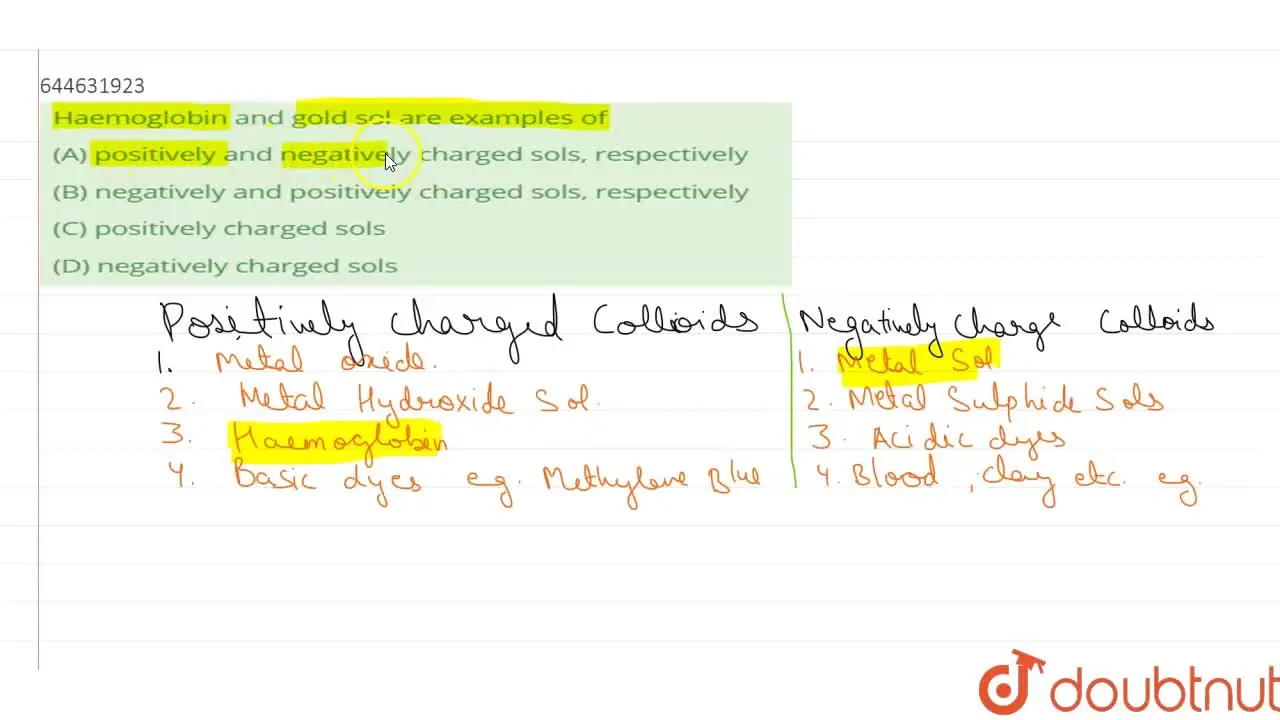 644631923
Haemoglobin and gold sol are examples of
(A) positively and negatively charged sols, respectively
(B) negatively and positively charged sols, respectively
(C) positively charged sols
(D) negatively charged sols
Positively charged Colloids
1. Metal oxide.
2. Metal Hydroxide Sol.
3. Haemoglobin
4. Basic dyes eg. Methylene Blue
Negatively Charge Colloids
1. Metal Sol
2. Metal Sulphide Sols
3. Acidic dyes
4. Blood, clay etc. eg.
doubtnut